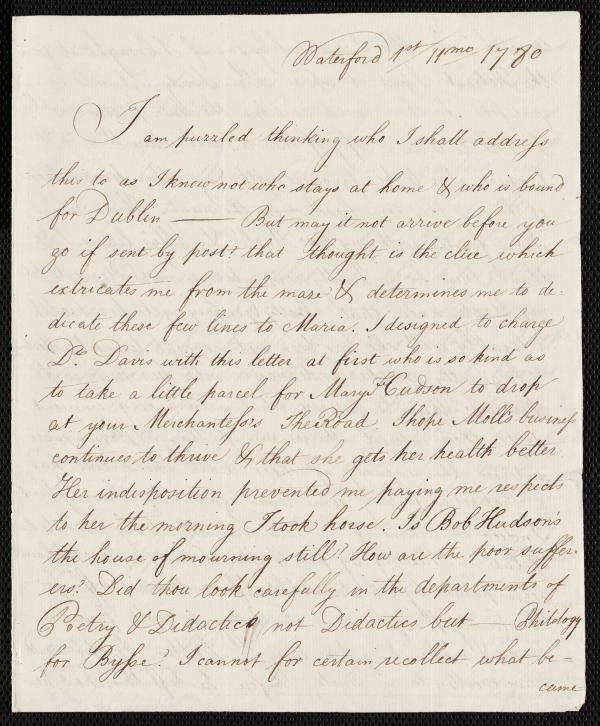 Waterford 1st 11mo 1780
I am puzzled thinking who I shall address
this to as I know not who stays at home & who is bound
for Dublin —— But may it not arrive before you
go if sent by post? that thought is the clue which
extricates me from the maze & determines me to de=
dicate these few lines to Maria. I designed to charge
Dr. Davis with this letter at first who is so kind as
to take a little parcel for Mary Hudson to drop
at your Merchantess's The Road. I hope Moll's business
continues to thrive & that she gets her health better.
Her indisposition prevented me paying me respects
to her the morning I took horse. Is Bob Hudson's
the house of mourning still? How are the poor suffer=
ers? Did thou look carefully in the departments of
Poetry & Didactics not Didactics but —— Philology
for Bysse? I cannot for certain recollect what be=
came